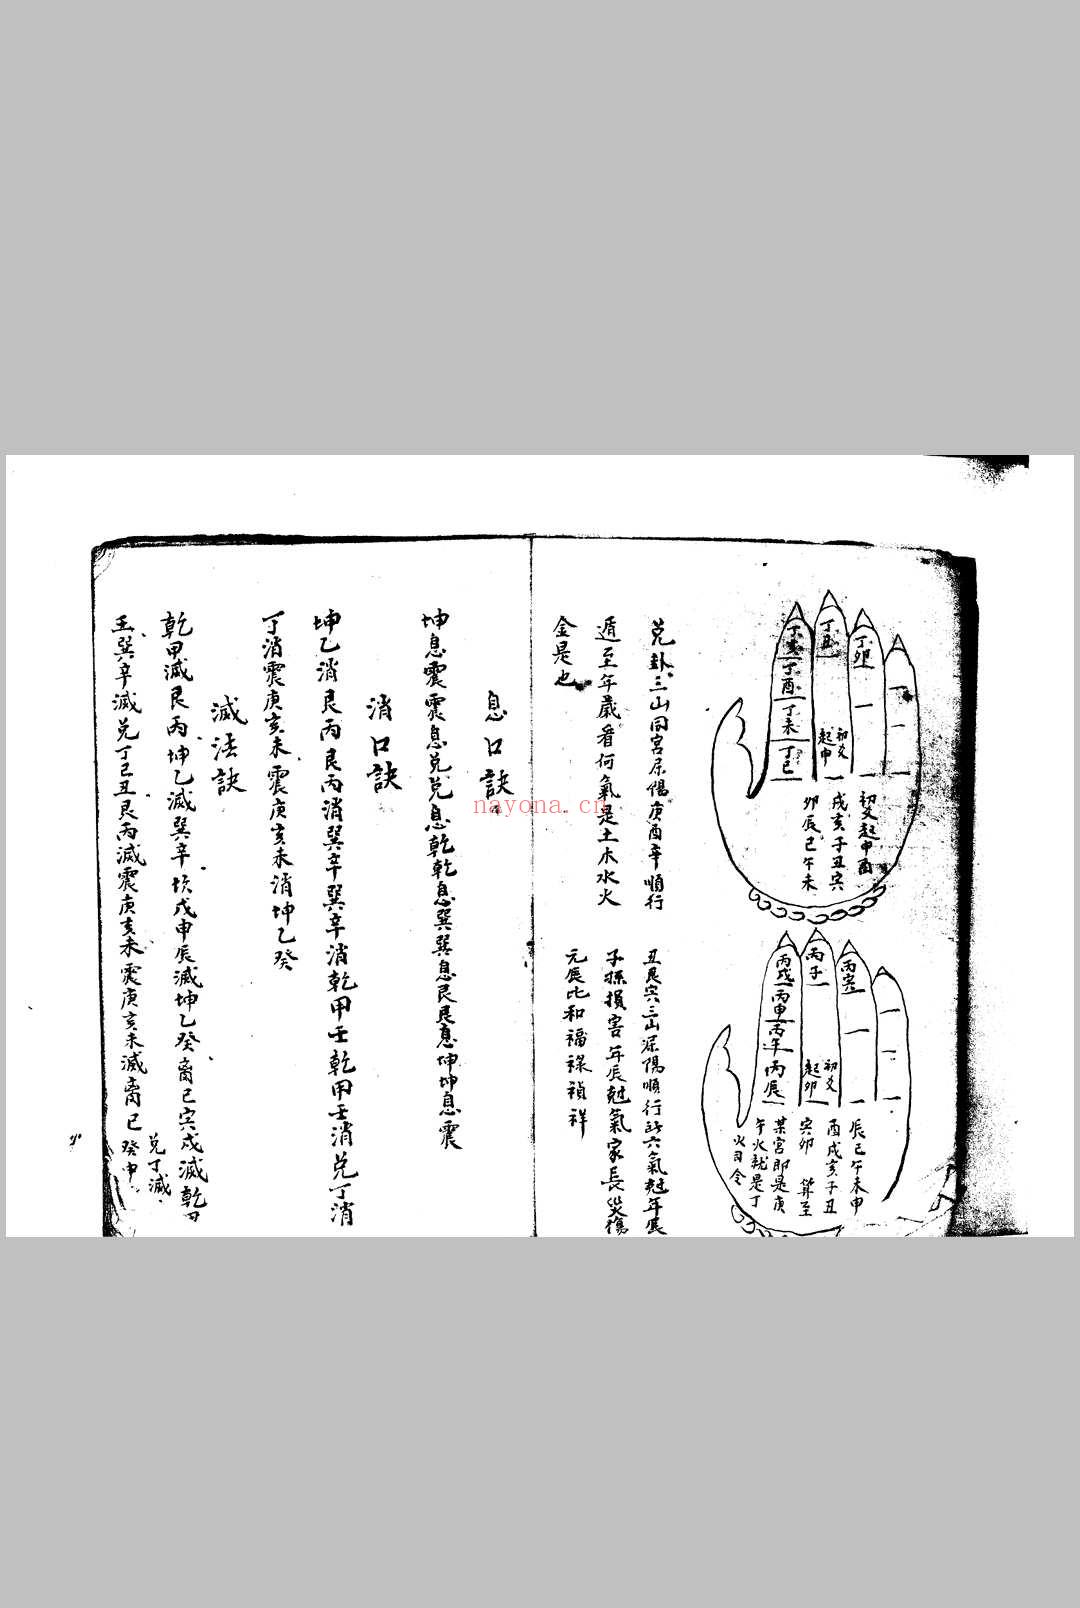 丁亥
丁酉
丁未
丁巳
丁丑
丁卯
初爻
起申
初爻起申酉
戌亥子丑寅
卯辰巳午未
丙戌
丙申
丙午
丙辰
丙子
丙寅
初爻
起卯
辰巳午未申
酉戌亥子丑
寅卯 算至
某宮即是庚
午火就是丁
火司令
兌卦三山同宮屬陽庚酉辛順行
遁至年嚴看何氣是土木水火
金是也
丑艮寅三山屬陽順行此六氣尅年辰
子孫損害年辰尅氣家長災傷
元辰比和福祿禎祥
息口訣
坤息震震息兌兌息乾乾息巽巽息艮艮息坤坤息震
消口訣
坤乙消艮丙艮丙消巽辛巽辛消乾甲壬乾甲壬消兌丁消
丁消震庚亥未震庚亥未消坤乙癸
滅法訣
乾甲滅艮丙坤乙滅巽辛坎戌申辰滅坤乙癸离巳寅戌滅乾甲
壬巽辛滅兌丁巳丑艮丙滅震庚亥未震庚亥未滅离巳
兌丁滅
癸申
nayona.cn